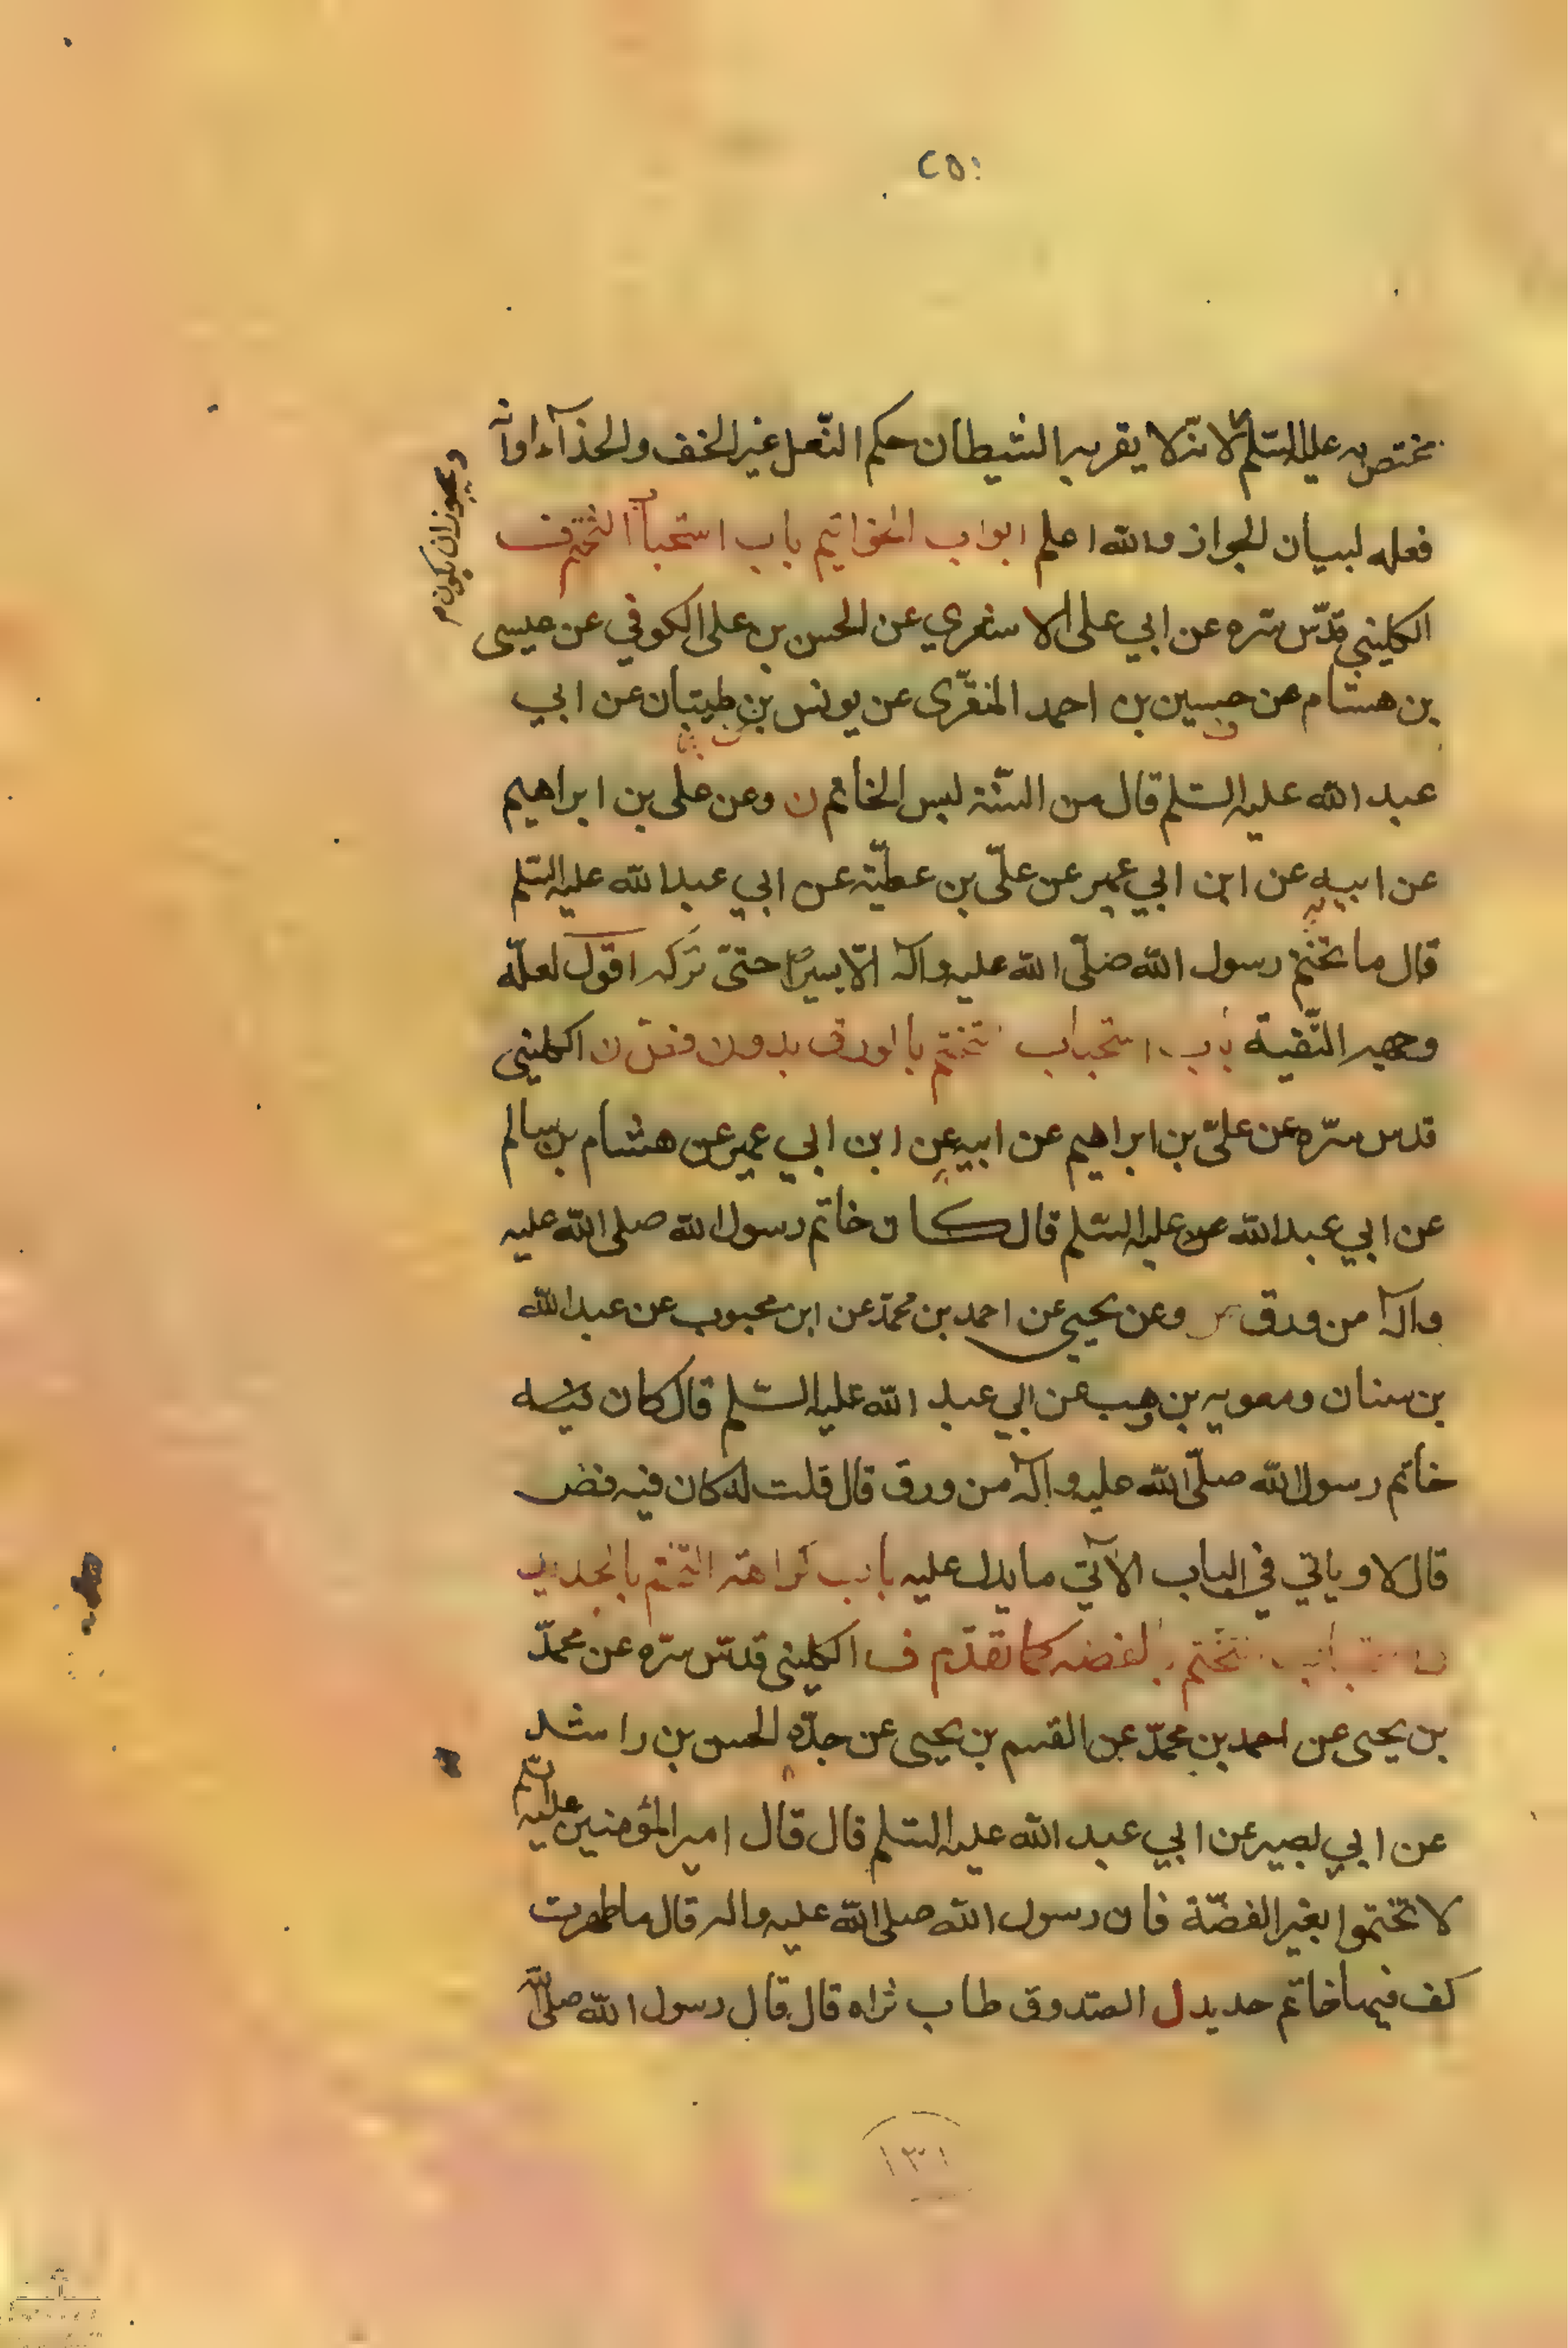 ٢٥٠
يختص به عليه السلم لانه لا يقربه الشيطان حكم النّعل غير الخف والحذآء اوانّه
ويجوز ان يكون م
فعله لبيان الجواز والله اعلم ابواب الخواتيم باب استحباب التختم ف
الكليني قدّس سّره عن ابي على الاشعري عن الحسن بن على الكوفي عن عيسى
بن هشام عن حسين بن احمد المنقّرى عن يونس بن ظبيان عن ابي
عبد الله عليه السّلم قال من السّنّة لبس الخاتم ن وعن على بن ابراهيم
عن ابيه عن ابن ابي عمير عن علّى بن عطيّة عن ابي عبد الله عليه السّلم
قال ما تختم رسول الله صلّى الله عليه وآله الّا يسيرًا حتىّ تركه اقول لعلّه
وجهه التّقية باب استحباب تختم بالورق بدون فص ن الكليني
قدس سّره عن علىّ بن ابراهيم عن ابيه عن ابن ابي عمير عن هشام بن سالم
عن ابي عبد الله عن عليه السّلم قال كان خاتم رسول الله صلى الله عليه
وآله من ورق وعن يحيى عن احمد بن محمّد عن ابن محبوب عن عبد الله
بن سنان ومعويه بن وهب عن ابي عبد الله عليه السّلم قال كان
خاتم رسول الله صلّى الله عليه وآله من ورق قال قلت له كان فيه فص
قال لا وياتي في الباب الآتي ما يدل عليه باب كراهة التختم بالحديد
تختم بالفضه كما تقدّم ف الكليني قدسّ سّره عن محمّد
بن يحيى عن احمد بن محمّد عن القسم بن يحيى عن جدّه الحسن بن راشد
عن ابي بصير عن ابي عبد الله عليه السّلم قال قال امير المؤمنين عليه السّلم
لا تختموا بغير الفضّة فان رسول الله صلى الله عليه واله قال ما طهرت
كف فيها خاتم حديد ل الصّدوق طاب ثراه قال قال رسول الله صلى الله
١٣١